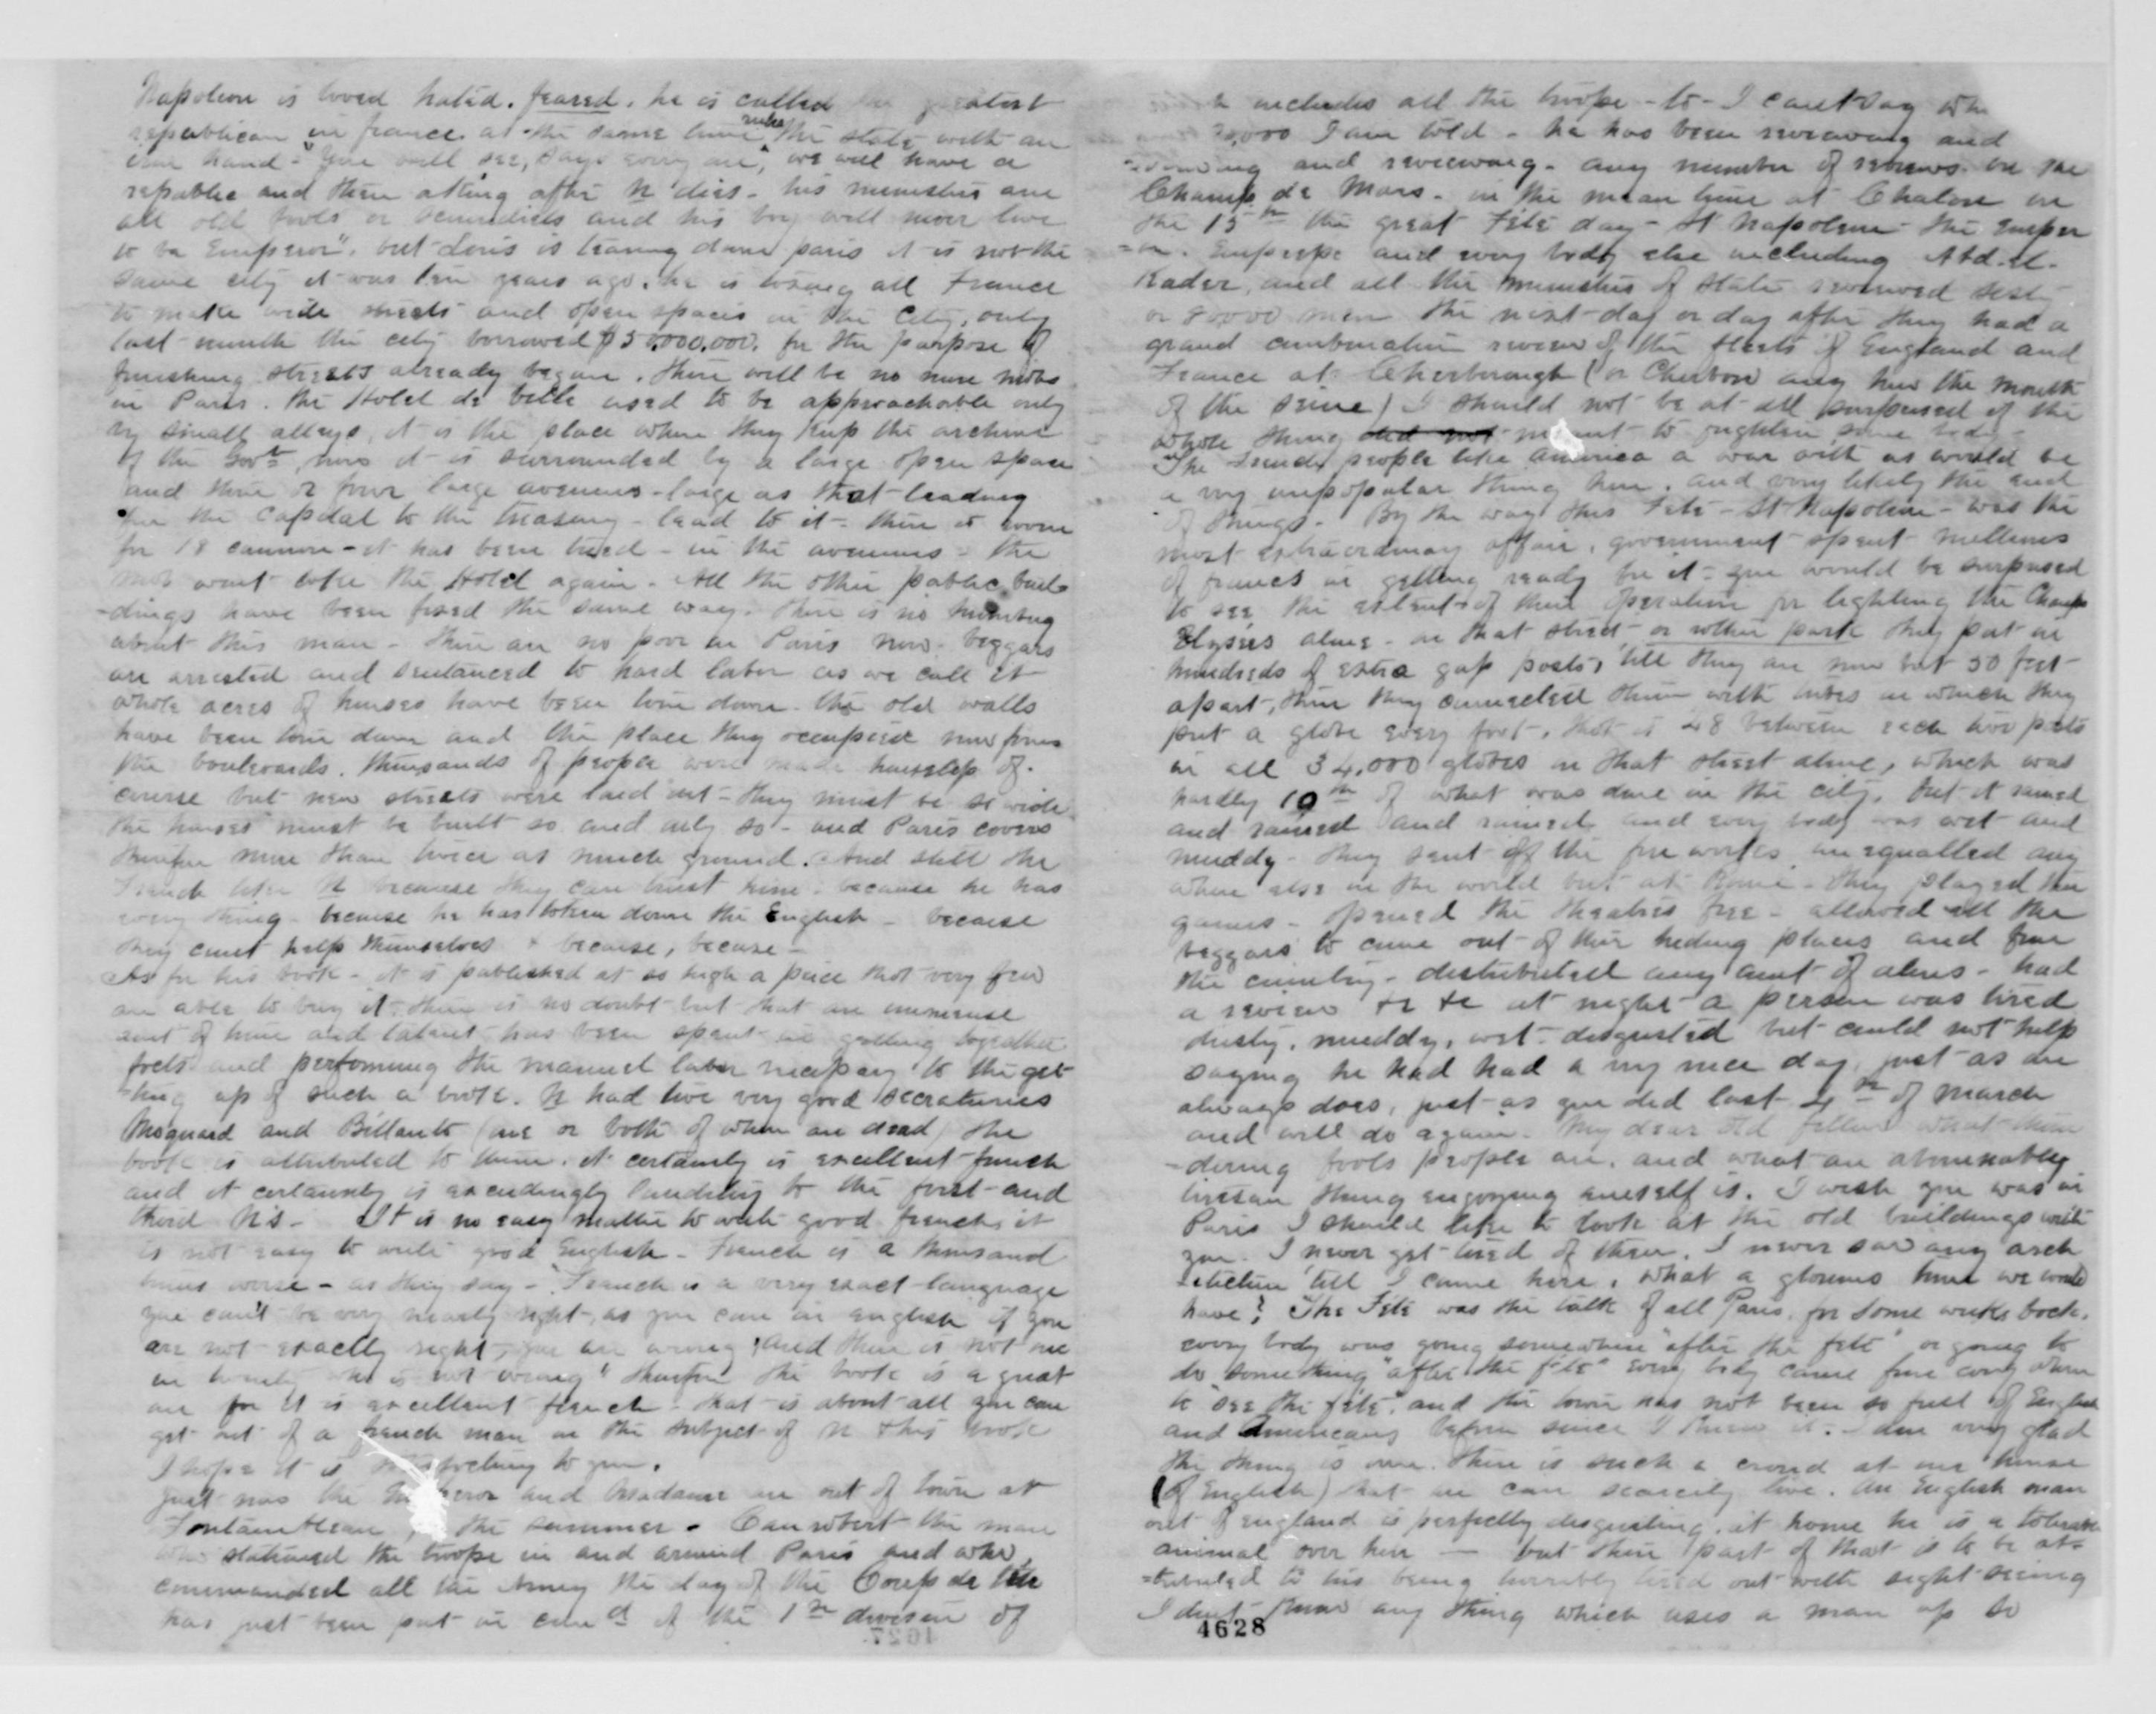 Napoleon is loved hated. feared. he is called the greatest
republican in france at the same time rules the state with an
iron hand - "You will see, says every one, we will have a
republic and then atting after N dies - his ministers are
all old fools or scoundrels and his boy will never live
to be Emperor". but Louis is tearing down paris it is not the
same city it was ten years ago. he is taxing all France
to make wide streets and open spaces in the City, only
last month the city borrowed $50,000,000. for the purpose of
finishing streets already begun. there will be no more mobs
in Paris. the Hotel de ville used to be approachable only
by small alleys, it is the place where they keep the archives
of the Govt, now it is surrounded by a large open space
and three or four large avenues - large as that leading
from the Capital to the treasury - lead to it - there is room
for 18 cannon - it has been tried - in the avenues - the
mob wont take the Hotel again - All the other public buil-
-dings have been fixed the same way. there is no humbug
about this man - there are no poor in Paris now. beggars
are arrested and sentanced to hard labor as we call it
whole acres of houses have been torn down - the old walls
have been torn down and the place they occupied now forms
the boulevards. thousands of people were made houseless of
course but new streets were laid out - they must be so wide
the houses must be built so and only so - and Paris covers
therefore more than twice as much ground. And still the
French like N because they can trust him. because he has
every thing - because he has taken down the English - because
they cant help themselves & because, because -
As for his book - it is published at so high a price that very few
are able to buy it. there is no doubt but that an immense
amt of time and talent has been spent in getting together
facts and performing the manuel labor necessary to the get-
-ting up of such a book. N had two very good secrataries
Moquard and Billault (one or both of whom are dead) the
book is attributed to them. it certainly is excellent french
and it certainly is exceedingly laudatory to the first and
third N's - It is no easy matter to write good french, it
is not easy to write good English - French is a thousand
times worse - as they say - "French is a very exact language
you can't be very nearly right, as you can in english if you
are not exactly right, you are wrong and there is not one
in twenty who is not wrong" therefore the book is a great
one for it is excellent french - that is about all you can
get out of a french man on the subject of N & his book
I hope it is to you.
Just now the Emperor and Madame are out of town at
Fontainbleau the summer. Canrobert the man
who stationed the troops in and around Paris and who
commanded all the Army the day of the Coup de tete
has just been put in comd of the 1st division of
includes all the troops - to - I cant say
,000 I am told - he has been reviewing and
-viewing and reviewing - any number of reviews on the
Champ de Mars - in the mean time at Chalon on
the 15th the great Fete day - St Napoleon - the Emper
=or. Empress and every body else including Abd-el-
Kader, and all the ministers of State reviewed sixty
or 80000 men the next day or day after they had a
grand combination review of the fleets of England and
France at Cherborough (or Cherbon any how the mouth
of the Seine) I should not be at all surprised if the
whole thing did not meant to frighten some body -
The French people like America a war with us would be
a very unpopular thing here. and very likely the end
of things - By the way this Fete - St Napoleon - was the
most extraordinary affair, government spent millions
of francs in getting ready for it - you would be surprised
to see the extent of their operation for lighting the Champs
Elysees alone - in that street or rather park they put in
hundreds of extra gas posts, till they are now but 50 feet
apart, then they connected them with tubes in which they
put a globe every foot. that is 48 between each two posts
in all 34,000 globes in that street alone, which was
hardly 10th of what was done in the city. But it rained
and rained and rained and every body was wet and
muddy - they sent off the fire works unequalled any
where else in the world but at Rome - they played the
games - opened the theatres free - allowed all the
beggars to come out of their hiding places and from
the country - distributed any amt of alms - had
a review &c &c at night a person was tired
dusty, muddy, wet - disgusted but could not help
saying he had had a very nice day, just as one
always does, just as you did last 4th of march
and will do again. My dear old fellow what
-dering fools people are, and what an abominably
tiresom thing enjoying oneself is. I wish you was in
Paris I should like to look at the old buildings with
you - I never get tired of them. I never saw any arch
-itecture till I came here, what a glorious time we would
have! The Fete was the talk of all Paris for some weeks back.
every body was going somewhere "after the fete" or going to
do something "after the fete" every body came from every where
to "see the fete". and the town has not been so full of English
and Americans before since I knew it. I am very glad
the thing is over. there is such a crowd at our house
(of English) that we can scarcely live. An English man
out of england is perfectly disgusting. at home he is a tolerable
animal over here - but then part of that is to be at=
=tributed to his being horribly tired out with sight seeing
I don't know any thing which uses a man up so
4628